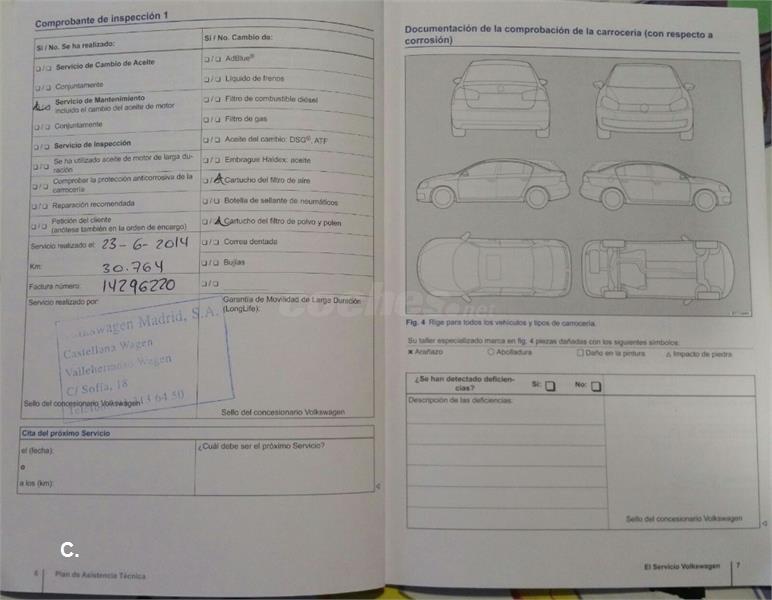 Comprobante de inspección 1
Sí / No. Se ha realizado:
❑ / ❑ Servicio de Cambio de Aceite
❑ / ❑ Conjuntamente
Servicio de Mantenimiento
incluido el cambio del aceite de motor
❑ / ❑ Conjuntamente
❑ / ❑ Servicio de Inspección
❑ / ❑ Se ha utilizado aceite de motor de larga du-
ración
❑ / ❑ Comprobar la protección anticorrosiva de la
carrocería
❑ / ❑ Reparación recomendada
❑ / ❑ Petición del cliente
(anótese también en la orden de encargo)
Servicio realizado el: 23-6-2014
Km: 30.764
Factura número: 14296220
Servicio realizado por:
Volkswagen Madrid, S.A.
Castellana Wagen
Vallehermoso Wagen
C/ Sofía, 18
64 50
Sello del concesionario Volkswagen
Sí / No. Cambio de:
❑ / ❑ AdBlue®
❑ / ❑ Líquido de frenos
❑ / ❑ Filtro de combustible diésel
❑ / ❑ Filtro de gas
❑ / ❑ Aceite del cambio: DSG®, ATF
❑ / ❑ Embrague Haldex: aceite
❑ / Cartucho del filtro de aire
❑ / ❑ Botella de sellante de neumáticos
❑ / Cartucho del filtro de polvo y polen
❑ / ❑ Correa dentada
❑ / ❑ Bujías
❑ / ❑
Garantía de Movilidad de Larga Duración
(LongLife):
Sello del concesionario Volkswagen
Cita del próximo Servicio
el (fecha):
o
a los (km):
¿Cuál debe ser el próximo Servicio?
C.
6 Plan de Asistencia Técnica
Documentación de la comprobación de la carrocería (con respecto a
corrosión)
coches.net
Fig. 4 Rige para todos los vehículos y tipos de carrocería.
Su taller especializado marca en fig. 4 piezas dañadas con los siguientes símbolos:
× Arañazo ○ Abolladura □ Daño en la pintura △ Impacto de piedra
¿Se han detectado deficien-
cias? Sí: ❑ No: ❑
Descripción de las deficiencias:
Sello del concesionario Volkswagen
El Servicio Volkswagen 7